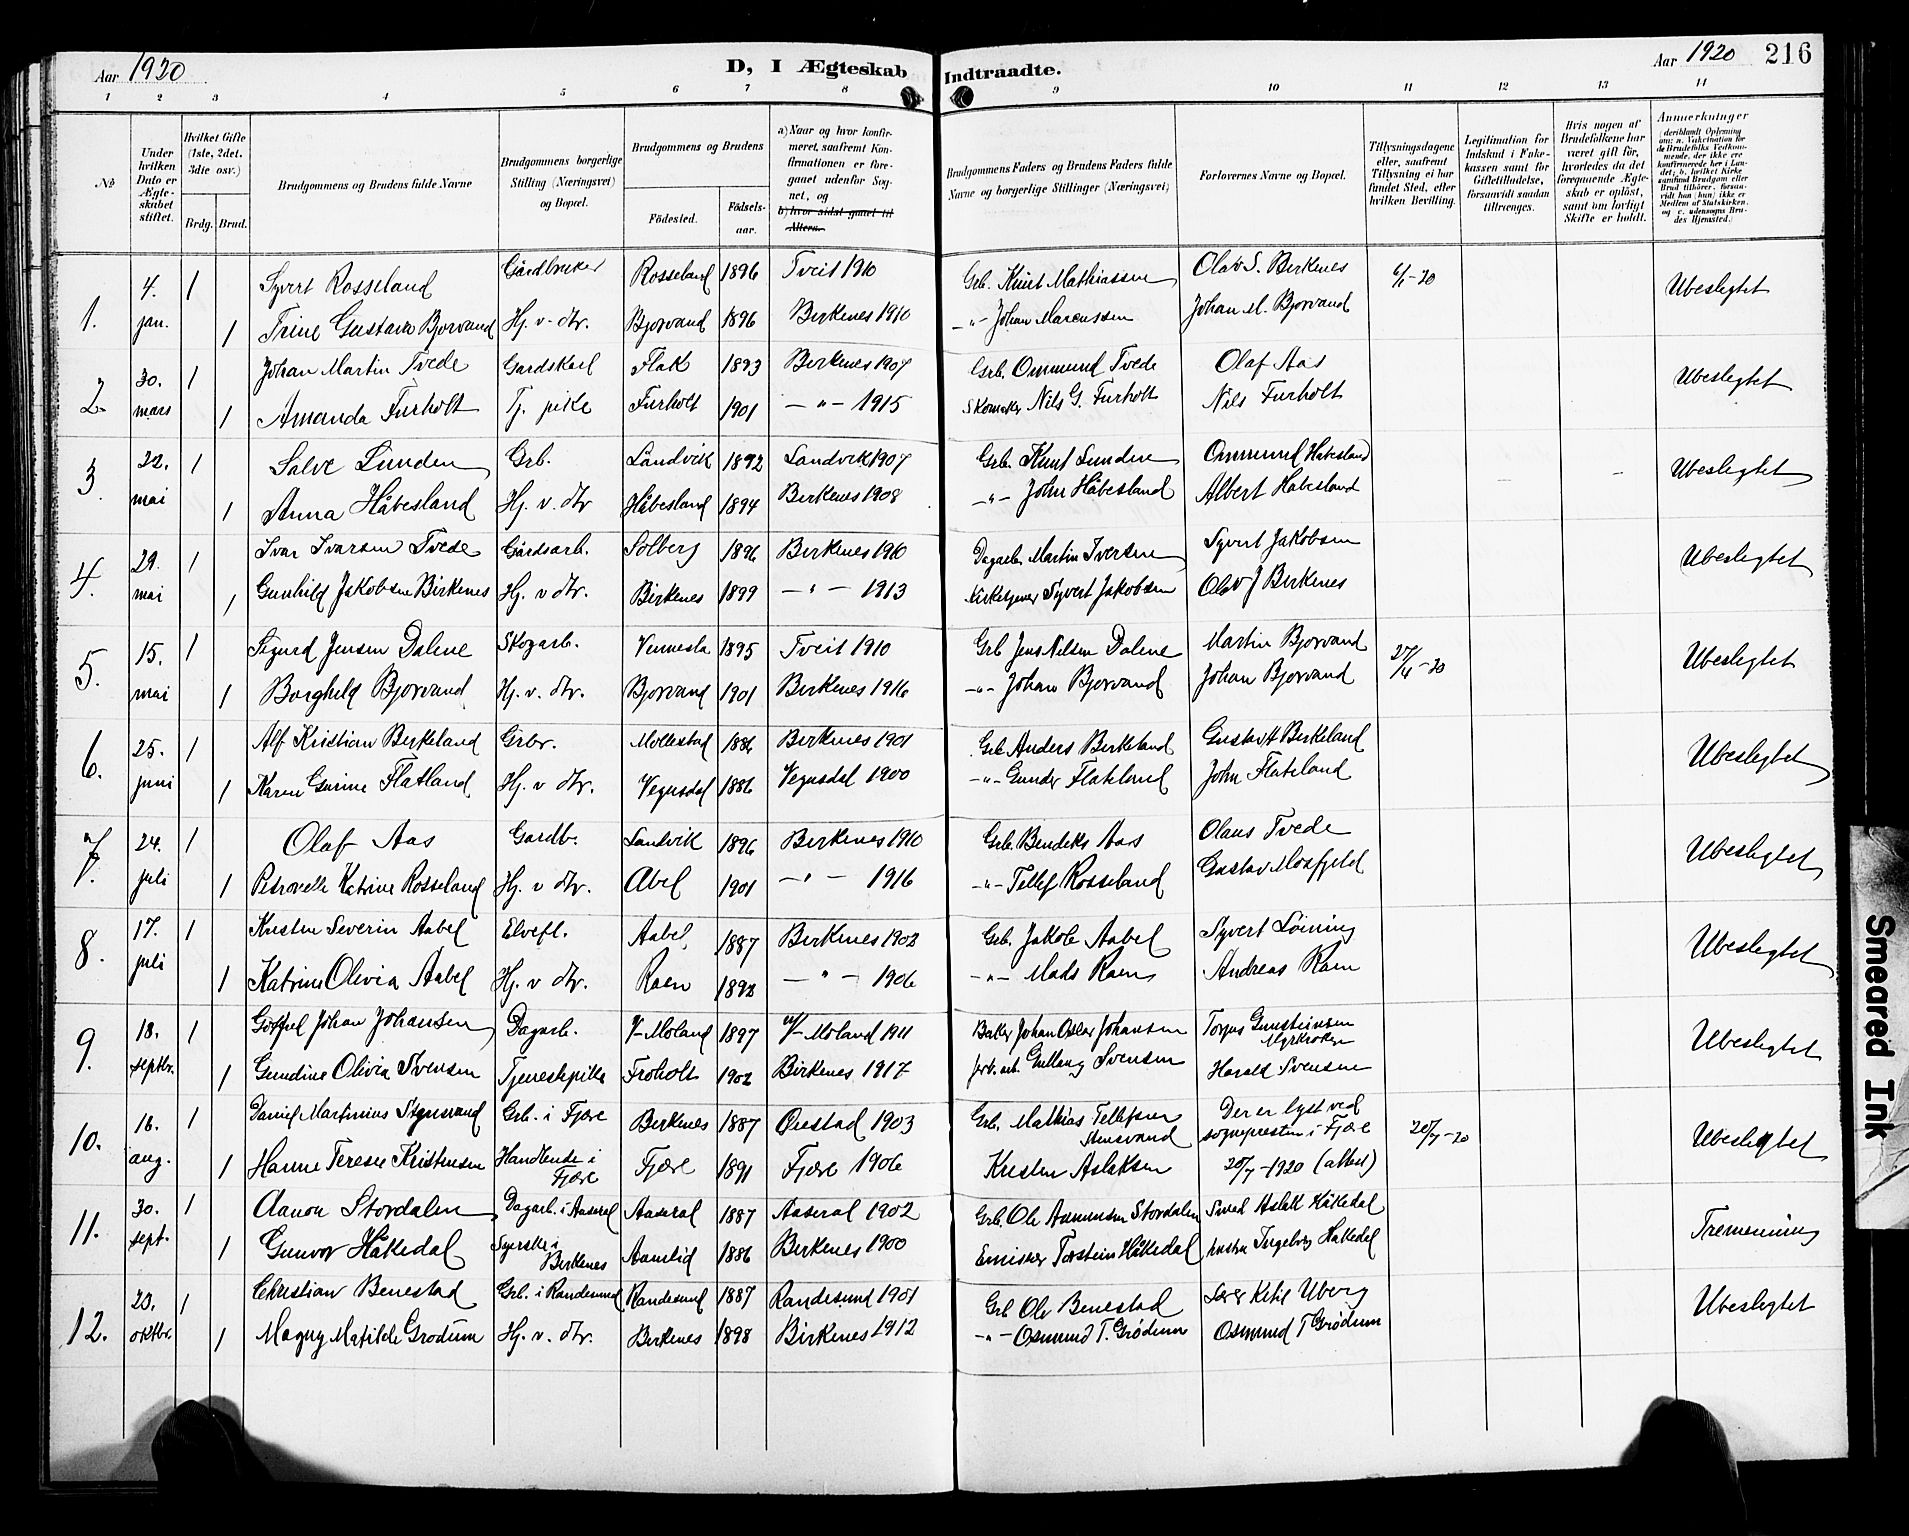 Aar 1920
D, I Ægteskab Indtraadte.
Aar 1920 216
1 2 3 4 5 6 7 8 9 10 11 12 13 14
No
Under hvilken Dato er Ægteskabet stiftet.
Hvilket Gifte (1ste, 2det, 3die osv.)
Brdg. Brud.
Brudgommens og Brudens fulde Navne
Brudgommens borgerlige Stilling (Næringsvei) og Bopæl.
Brudgommens og Brudens
Födested.
Födselsaar.
a) Naar og hvor konfirmeret, saafremt Konfirmationen er foregaaet udenfor Sognet, og
b) hvor sidst gaaet til Alters.
Brudgommens Faders og Brudens Faders fulde Navne og borgerlige Stillinger (Næringsvei)
Forlovernes Navne og Bopæl.
Tillysningsdagene eller, saafremt Tillysning ei har fundet Sted, efter hvilken Bevilling.
Legitimation for Indskud i Enkekassen samt for Giftetilladelse, forsaavidt saadan tiltrænges.
Hvis nogen af Brudefolkene har været gift før, hvorledes da det foregaaende Ægteskab er oplöst, samt om lovligt Skifte er holdt.
Anmerkninger
1. 4. jan. 1 Syvert Rosseland Gårdbruker Rosseland 1896 Tveit 1910 Grb. Knut Mathiassen Olav S. Birkenes 6/1-20 Ubeslegtet
1 Trine Gustava Bjorvand Hj. v. dtr. Bjorvand 1896 Birkenes 1910 -"- Johan Marcussen Johan M. Bjorvand
2. 30. mars 1 Johan Martin Tvede Gardskarl Flak 1893 Birkenes 1907 Grb. Ommund Tvede Olaf Aas Ubeslegtet
1 Amanda Furholt Tj. pike Furholt 1901 -"- 1915 Skomaker Nils G. Furholt Nils Furholt
3. 22. mai 1 Salve Lunden Grb. Landvik 1892 Landvik 1907 Grb. Knut Lunden Ommund Håbesland Ubeslegtet
1 Anna Håbesland Hj. v. dtr Håbesland 1894 Birkenes 1908 -"- John Håbesland Albert Håbesland
4. 29. mai 1 Ivar Ivarsen Tvede Gårdsarb. Solberg 1896 Birkenes 1910 Dagarb. Martin Iversen Syvert Jakobsen Ubeslegtet
1 Gunhild Jakobsen Birkenes Hj. v dtr. Birkenes 1899 -"- 1913 Kirketjener Syvert Jakobsen Olav J Birkenes
5. 15. mai 1 Sigurd Jensen Dalene Skogarb. Vennesla 1895 Tveit 1910 Grb Jens Nilsen Dalene Martin Bjorvand 27/4-20 Ubeslegtet
1 Borghild Bjorvand Hj. v. dtr. Bjorvand 1901 Birkenes 1916 -"- Johan Bjorvand Johan Bjorvand
6. 25. juni 1 Alf Kristian Birkeland Grbr. Mollestad 1886 Birkenes 1901 Grb Anders Birkeland Gustav A Birkeland Ubeslegtet
1 Karen Gurine Flatland Hj. v dtr. Vegusdal 1886 Vegusdal 1900 -"- Gunder Flateland John Flateland
7. 24. juli 1 Olaf Aas Gardb. Landvik 1896 Birkenes 1910 Grb. Bendiks Aas Olaus Tvede Ubeslegtet
1 Petronelle Katrine Rosseland Hj. v dtr. Abel 1901 -"- 1916 -"- Tellef Rosseland Gustav Mosfjeld
8. 17. juli 1 Kristen Severin Aabel Elvefl. Aabel 1887 Birkenes 1902 Grb. Jakob Aabel Syvert Löining Ubeslegtet
1 Katrine Olivia Aabel Hj. v dtr. Raen 1892 -"- 1906 -"- Mads Raen Andreas Raen
9. 18. septbr. 1 Johan Johansen Dagarb. V-Moland 1897 V-Moland 1911 Baker Johan Oskar Johansen Torjus Gunsteinsen Myrkroken Ubeslegtet
1 Gundine Olivia Svensen Tjenestpike Froholt 1902 Birkenes 1917 Gullaug Svensen Harald Svensen
10. 16. aug. 1 Daniel Martinius Stensvand Grb. i Fjære Birkenes 1887 Öiestad 1903 Grb. Mathias Tellefsen Stensvand Der er lyst ved sognepresten i Fjære 20/7-20 Ubeslegtet
1 Hanne Terese Kristensen Handlende i Fjære Fjære 1891 Fjære 1906 Kristen Aslaksen 20/7-1920 (attest)
11. 30. sept. 1 Aanon Stordalen Dagarb. i Aaseral Aaseral 1887 Aaseral 1902 Grb. Ole Aanundsen Stordalen Smed Aslak Håkedal Tremenning
1 Gunvor Håkedal Syerske i Birkenes Aamlid 1886 Birkenes 1900 Emissær Torstein Håkedal hustru Ingeborg Håkedal
12. 23. oktbr. 1 Christian Benestad Grb. i Randesund Randesund 1887 Randesund 1901 Grb Ole Benestad Lærer Ketil Uberg Ubeslegtet
1 Magny Matilde Grødum Hj. v. dtr. Birkenes 1898 Birkenes 1912 -"- Osmund T. Grødum Osmund T Grødum
Smeared Ink